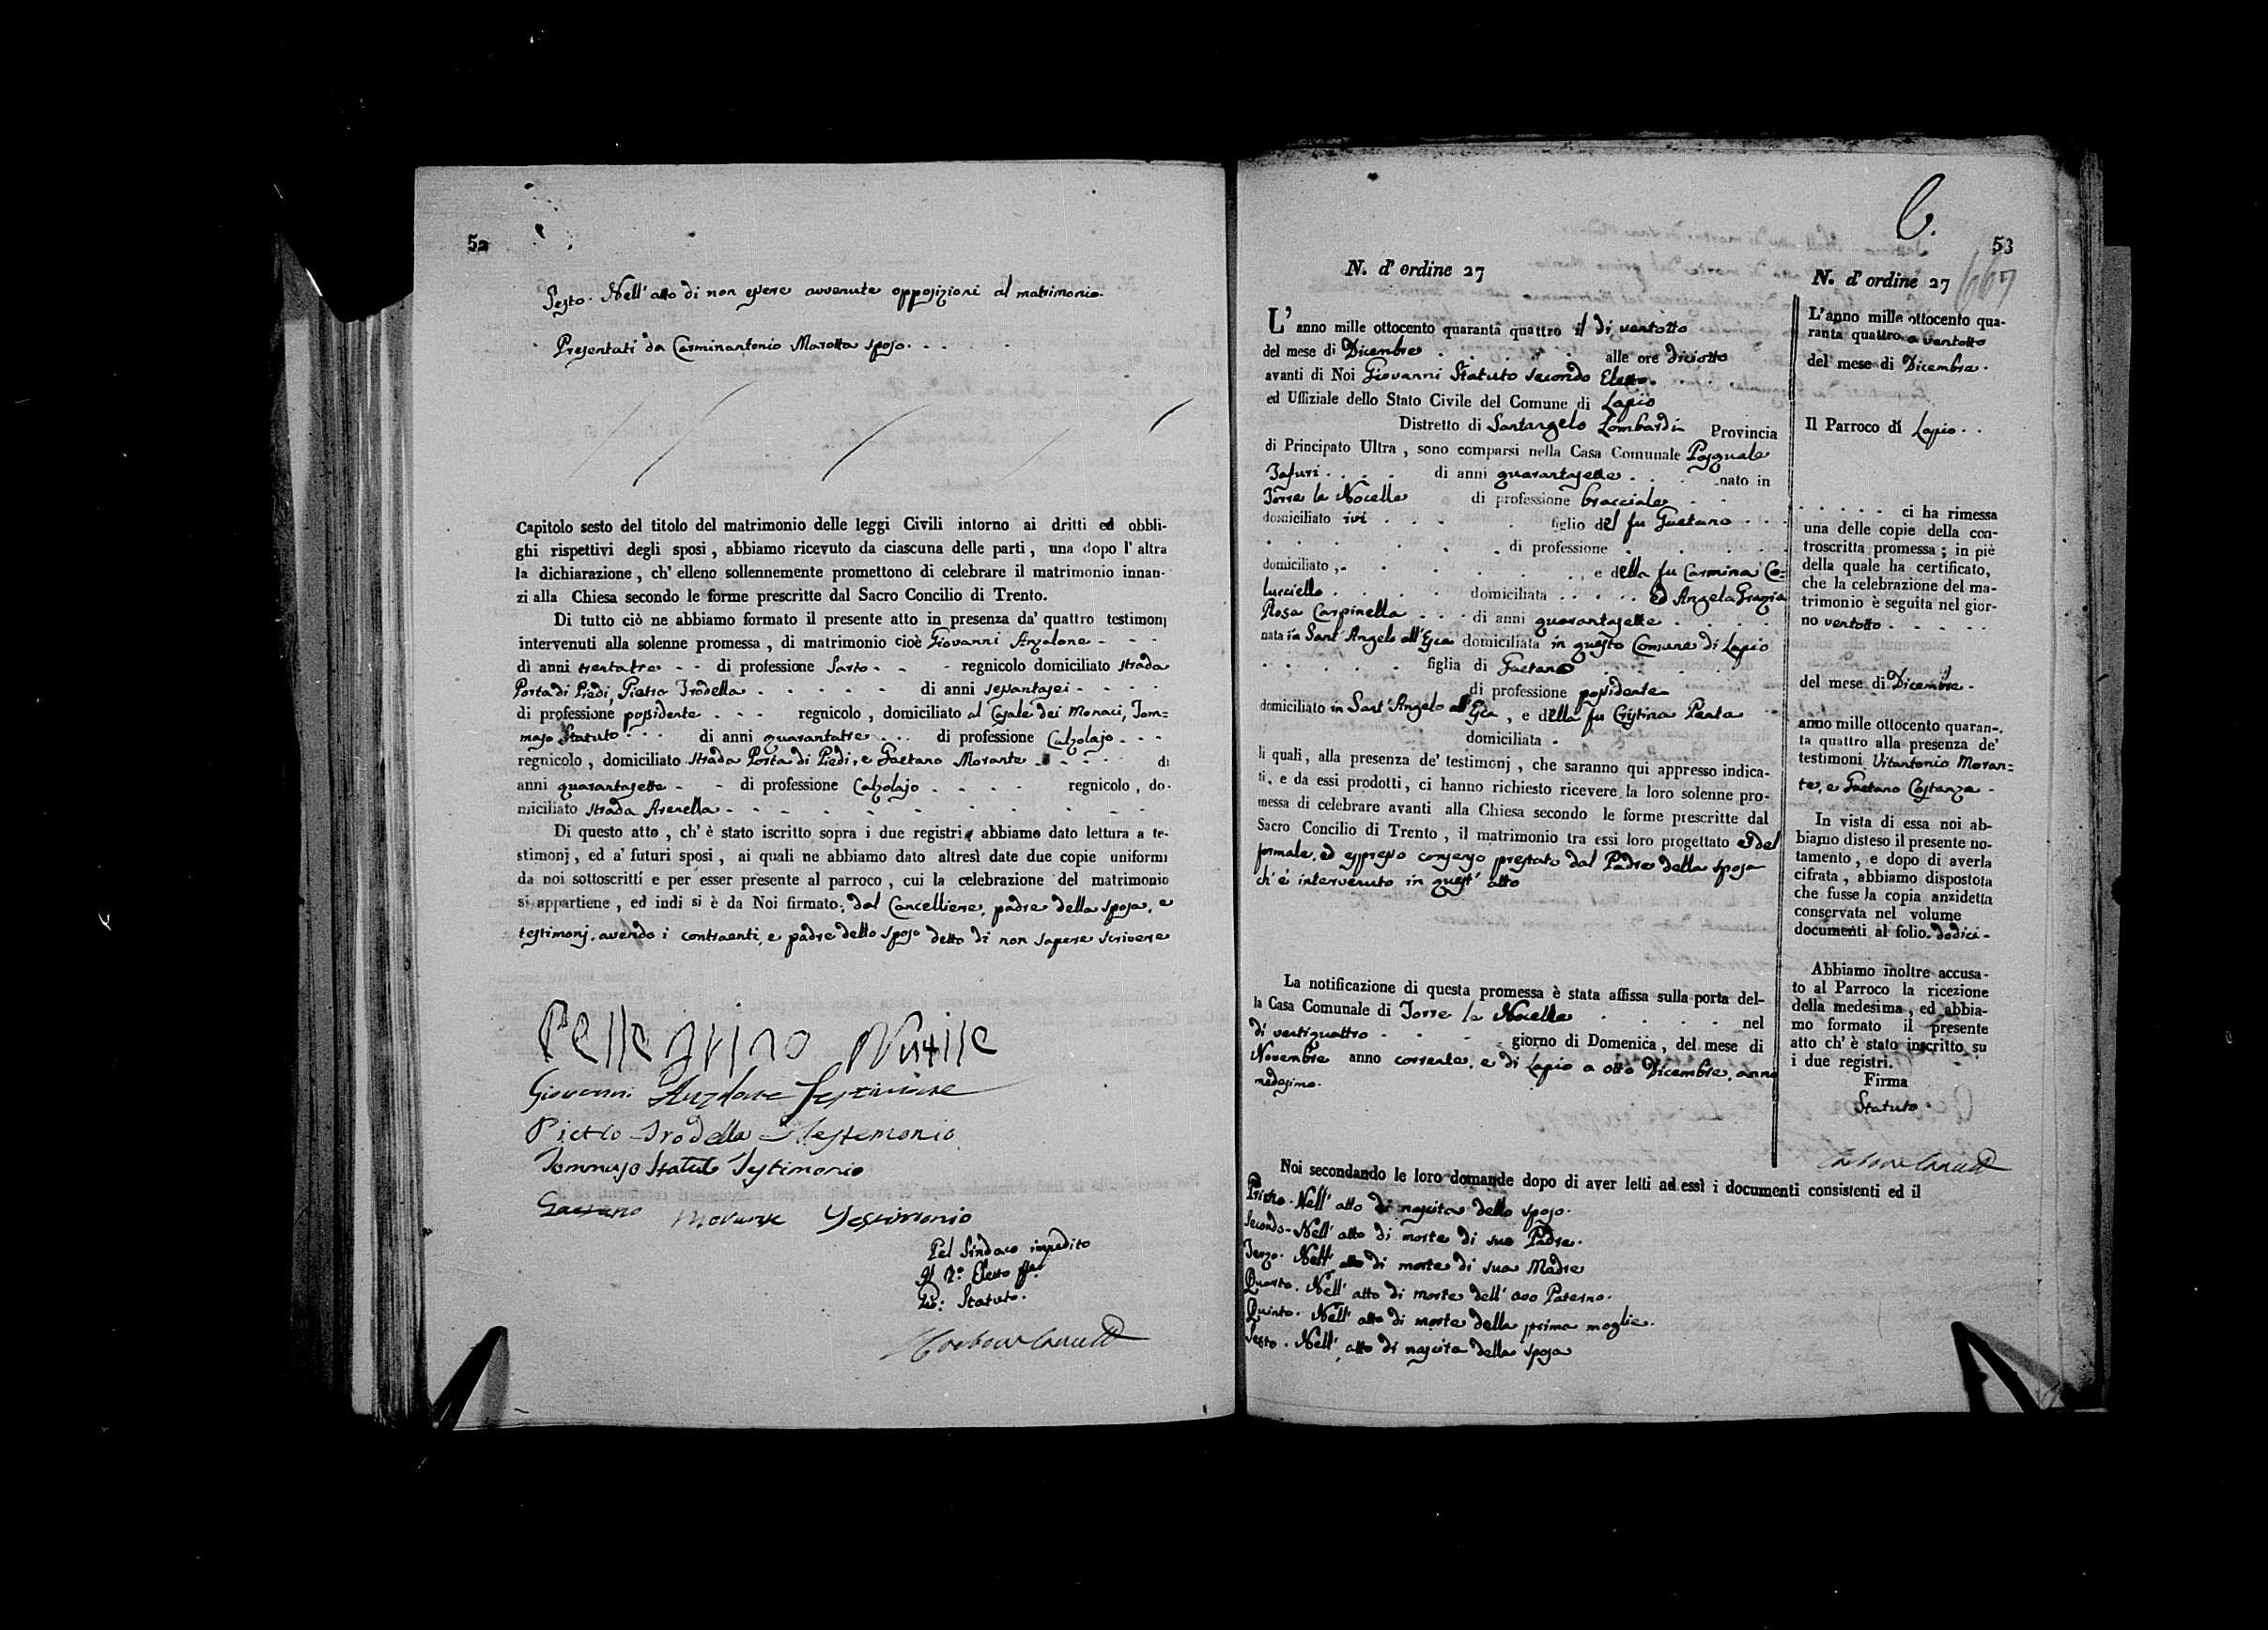 52
Sesto. Nell' atto di non essere avvenute opposizioni al matrimonio.
Presentati da Carminantonio Marotta sposo. . . . .
Capitolo sesto del titolo del matrimonio delle leggi Civili intorno ai dritti ed obbli-
ghi rispettivi degli sposi, abbiamo ricevuto da ciascuna delle parti, una dopo l' altra
la dichiarazione, ch' elleno sollennemente promettono di celebrare il matrimonio innan-
zi alla Chiesa secondo le forme prescritte dal Sacro Concilio di Trento.
Di tutto ciò ne abbiamo formato il presente atto in presenza da' quattro testimonj
intervenuti alla solenne promessa, di matrimonio cioè Giovanni Anzalone - - -
di anni trentatre - - di professione Sarto - - - regnicolo domiciliato strada
Porta di Piedi, Pietro Trodella . . . . . di anni sessantasei - - - -
di professione possidente . . - regnicolo, domiciliato al Casale dei Monaci, Tom=
maso Statuto . . . di anni quarantatre . . . di professione Calzolajo . - -
regnicolo, domiciliato strada Porta di Piedi, e Gaetano Morante . . - - - di
anni quarantasette - - di professione Calzolajo . . . . regnicolo, do-
miciliato strada Arenella - - - - - - - - -
Di questo atto, ch' è stato iscritto sopra i due registri, abbiamo dato lettura a te-
stimonj, ed a' futuri sposi, ai quali ne abbiamo dato altresì date due copie uniformi
da noi sottoscritti e per esser presente al parroco, cui la celebrazione del matrimonio
si appartiene, ed indi si è da Noi firmato, dal Cancelliere, padre della sposa, e
testimonj, avendo i contraenti, e padre dello sposo detto di non sapere scrivere
Pellegrino
Giovanni Anzalone Testimone
Pietro Trodella Testemonio
Tommaso Statuto Testimonio
Gaetano Morante Testimonio
Pel Sindaco impedito
Il 2.º Eletto
Statuto.
53
667
N. d' ordine 27
L' anno mille ottocento quaranta quattro il di ventotto
del mese di Dicembre . . . . . alle ore diciotto
avanti di Noi Giovanni Statuto secondo Eletto. . .
ed Uffiziale dello Stato Civile del Comune di Lapio
Distretto di Santangelo Lombardi Provincia
di Principato Ultra, sono comparsi nella Casa Comunale Pasquale
Tafuri . . . . di anni quarantasette . . . nato in
Torre le Nocelle di professione bracciale . .
domiciliato ivi . . . . . figlio del fu Gaetano . . .
. . . . . . di professione . . . . .
domiciliato, . . . . . . . , e della fu Carmina Co=
lucciello . . . . . domiciliata . . . . . ed Angela Grazia
Rosa Carpinella . . . di anni quarantasette . . . .
nata in Sant' Angelo all' Esca domiciliata in questo Comune di Lapio
. . . . . figlia di Gaetano . . . . .
di professione possidente
domiciliato in Sant' Angelo all' Esca, e della fu Cristina Penta
domiciliata .
li quali, alla presenza de' testimonj, che saranno qui appresso indica-
ti, e da essi prodotti, ci hanno richiesto ricevere la loro solenne pro-
messa di celebrare avanti alla Chiesa secondo le forme prescritte dal
Sacro Concilio di Trento, il matrimonio tra essi loro progettato e del
formale, ed espresso consenso prestato dal Padre della sposa
ch' è intervenuto in quest' atto
La notificazione di questa promessa è stata affissa sulla porta del-
la Casa Comunale di Torre le Nocelle . . . . nel
di ventiquattro - - - giorno di Domenica, del mese di
Novembre anno corrente, e di Lapio a otto Dicembre, anno
medesimo.
Noi secondando le loro domande dopo di aver letti ad essi i documenti consistenti ed il
Primo. Nell' atto di nascita dello sposo.
Secondo. Nell' atto di morte di suo Padre.
Terzo. Nell' atto di morte di sua Madre
Quarto. Nell' atto di morte dell' avo Paterno.
Quinto. Nell' atto di morte della prima moglie.
Sesto. Nell' atto di nascita della sposa
N. d' ordine 27
L'anno mille ottocento qua-
ranta quattro a ventotto
del mese di Dicembre.
Il Parroco di Lapio . .
. . . . . ci ha rimessa
una delle copie della con-
troscritta promessa; in piè
della quale ha certificato,
che la celebrazione del ma-
trimonio è seguita nel gior-
no ventotto . . . . .
del mese di Dicembre -
anno mille ottocento quaran-
ta quattro alla presenza de'
testimoni Vitantonio Moran=
te, e Gaetano Costanza -
In vista di essa noi ab-
biamo disteso il presente no-
tamento, e dopo di averla
cifrata, abbiamo dispostota
che fusse la copia anzidetta
conservata nel volume
documenti al folio. dodici -
Abbiamo inoltre accusa-
to al Parroco la ricezione
della medesima, ed abbia-
mo formato il presente
atto ch' è stato inscritto su
i due registri.
Firma
Statuto.